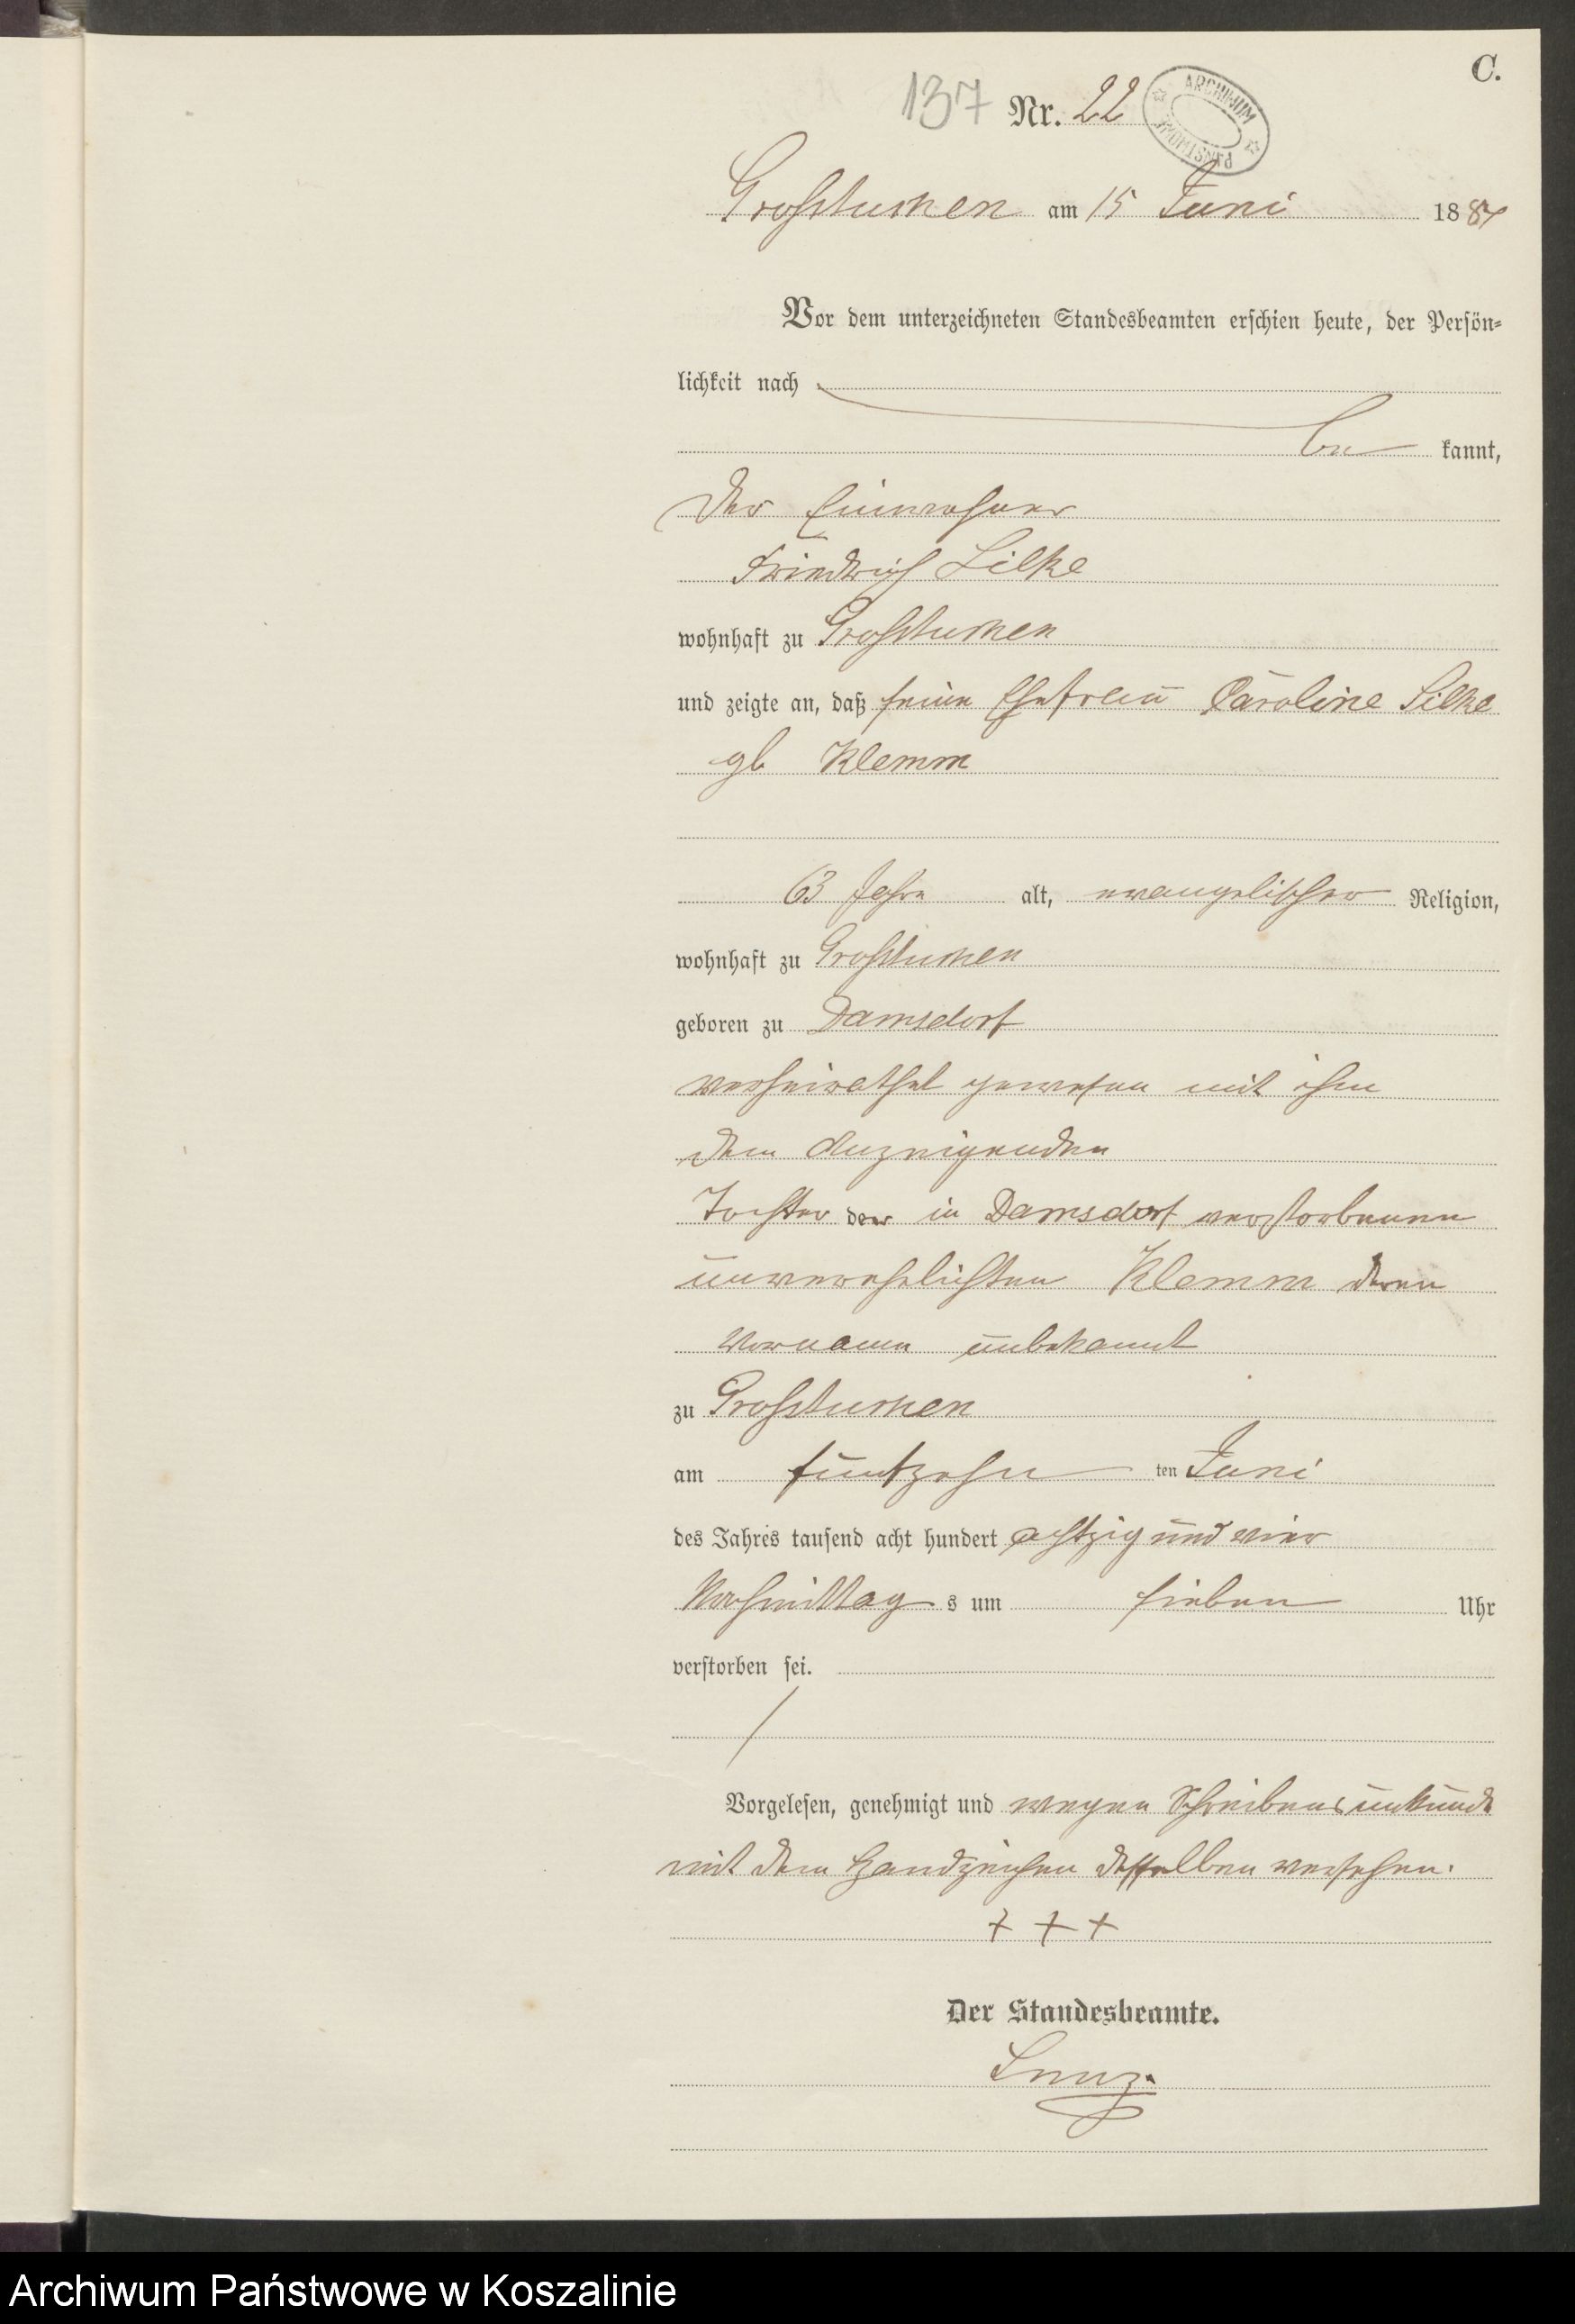 C.
137 Nr. 22
ARCHIWUM PAŃSTWOWE
Großtuchen am 15 Juni 1884
Vor dem unterzeichneten Standesbeamten erschien heute, der Persön-
lichkeit nach
be kannt,
der Einwohner
Friedrich Silke
wohnhaft zu Großtuchen
und zeigte an, daß seine Ehefrau Caroline Silke
gb Klemm
63 Jahre alt, evangelischer Religion,
wohnhaft zu Großtuchen
geboren zu Damsdorf
verheirathet gewesen mit ihm
dem Anzeigenden
Tochter der in Damsdorf verstorbenen
unverehelichten Klemm deren
Vorname unbekannt
zu Großtuchen
am fünfzehn ten Juni
des Jahres tausend acht hundert achtzig und vier
Nachmittag s um sieben Uhr
verstorben sei.
Vorgelesen, genehmigt und wegen Schreibensunkunde
mit dem Handzeichen desselben versehen.
+ + +
Der Standesbeamte.
Archiwum Państwowe w Koszalinie